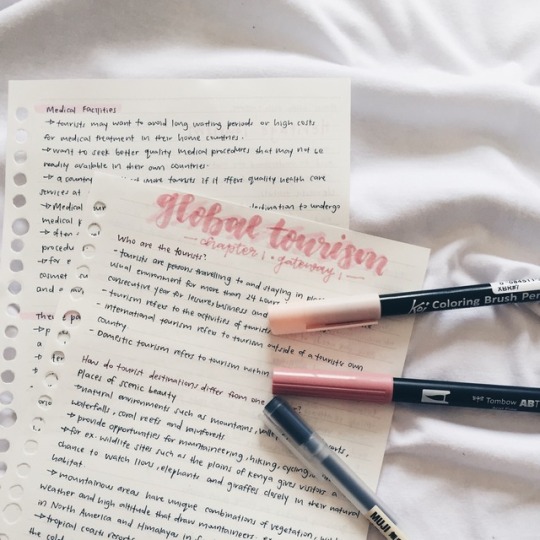 Medical Facilities
→ tourists may want to avoid long waiting periods or high costs
for medical treatment in their home countries.
→ want to seek better quality medical procedures that may not be
readily available in their own countries.
→ a country more tourists if it offers quality health care
services at
→ Medical destination to undergo
medical
→ often
→ for
and
global tourism
chapter 1 • gateway 1
Who are the tourists?
- tourists are persons travelling to and staying in
usual environment for more than 24 hour
consecutive year for leisure, business and
- tourism refers to the activities of tourists
- international tourism refers to tourism outside of a tourist's own
country
- Domestic tourism refers to tourism within
How do tourist destinations differ from one
Places of scenic beauty
→ natural environments such as mountains,
waterfalls, coral reefs and rainforests
→ provide opportunities for mountaineering, hiking, cycling
→ for ex. wildlife sites such as the plains of kenya gives visitors a
chance to watch lions, elephants and giraffes closely in their natural
habitat
→ mountainous areas have unique combinations of vegetation,
weather and high altitude that draw mountaineers.
in North America and Himalayas in
→ tropical coasts
the
Koi Coloring Brush Pen
XBR
Tombow ABT
MUJI